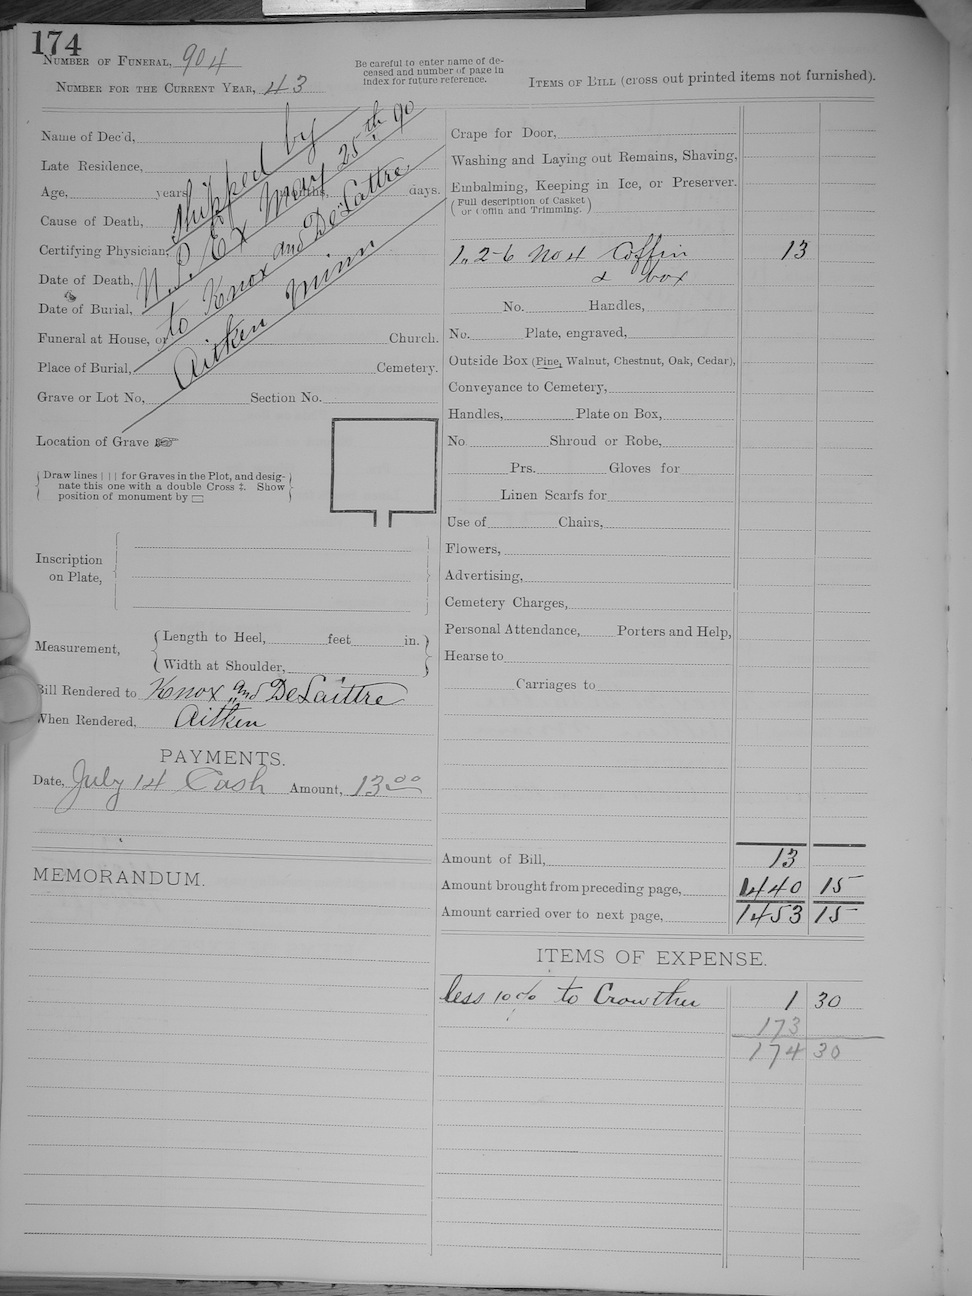 174
NUMBER OF FUNERAL, 904
NUMBER FOR THE CURRENT YEAR, 43
Be careful to enter name of de-
ceased and number of page in
Index for future reference.
ITEMS OF BILL (cross out printed items not furnished).
Name of Dec'd,
Late Residence,
Age, years months days.
Cause of Death,
Certifying Physician,
Date of Death,
Date of Burial,
Funeral at House, or Church.
Place of Burial, Cemetery.
Grave or Lot No, Section No.
shipped by
N. P. Ex May 25th 90
to Knox and DeLaittre
Aitken Minn
Location of Grave ☞
Draw lines | | | for Graves in the Plot, and desig-
nate this one with a double Cross ‡. Show
position of monument by ▭
Inscription
on Plate,
Measurement,
Length to Heel, feet in.
Width at Shoulder,
Bill Rendered to Knox and DeLaittre
When Rendered, Aitken
PAYMENTS.
Date, July 14 Cash Amount, 13.00
MEMORANDUM.
Crape for Door,
Washing and Laying out Remains, Shaving,
Embalming, Keeping in Ice, or Preserver.
(Full description of Casket
or Coffin and Trimming.)
1, 2-6 No 4 Coffin 13
& box
No. Handles,
No. Plate, engraved,
Outside Box (Pine, Walnut, Chestnut, Oak, Cedar),
Conveyance to Cemetery,
Handles, Plate on Box,
No. Shroud or Robe,
Prs. Gloves for
Linen Scarfs for
Use of Chairs,
Flowers,
Advertising,
Cemetery Charges,
Personal Attendance, Porters and Help,
Hearse to
Carriages to
Amount of Bill, 13
Amount brought from preceding page, 1440 15
Amount carried over to next page, 1453 15
ITEMS OF EXPENSE.
less 10% to Crowther 1 30
173
174 30